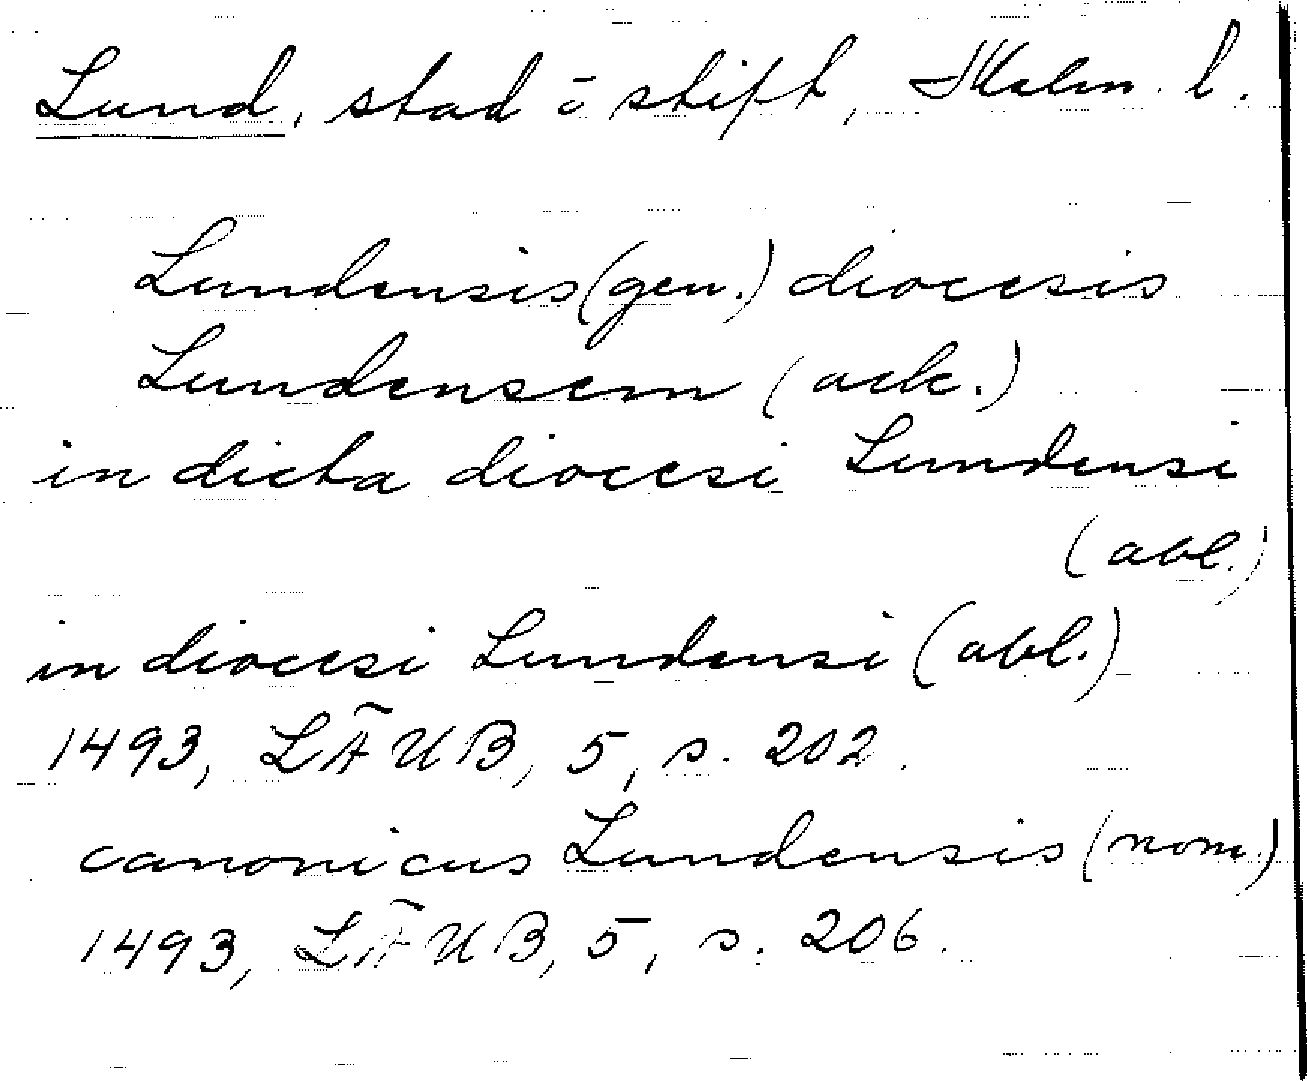 Lund, stad o stift, Malm. l.
Lundensis (gen.) diocesis
Lundensem (ack.)
in dicta diocesi Lundensi
(abl.)
in diocesi Lundensi (abl.)
1493, LÄUB, 5, s. 202.
canonicus Lundensis (nom.)
1493, LÄUB, 5, s. 206.